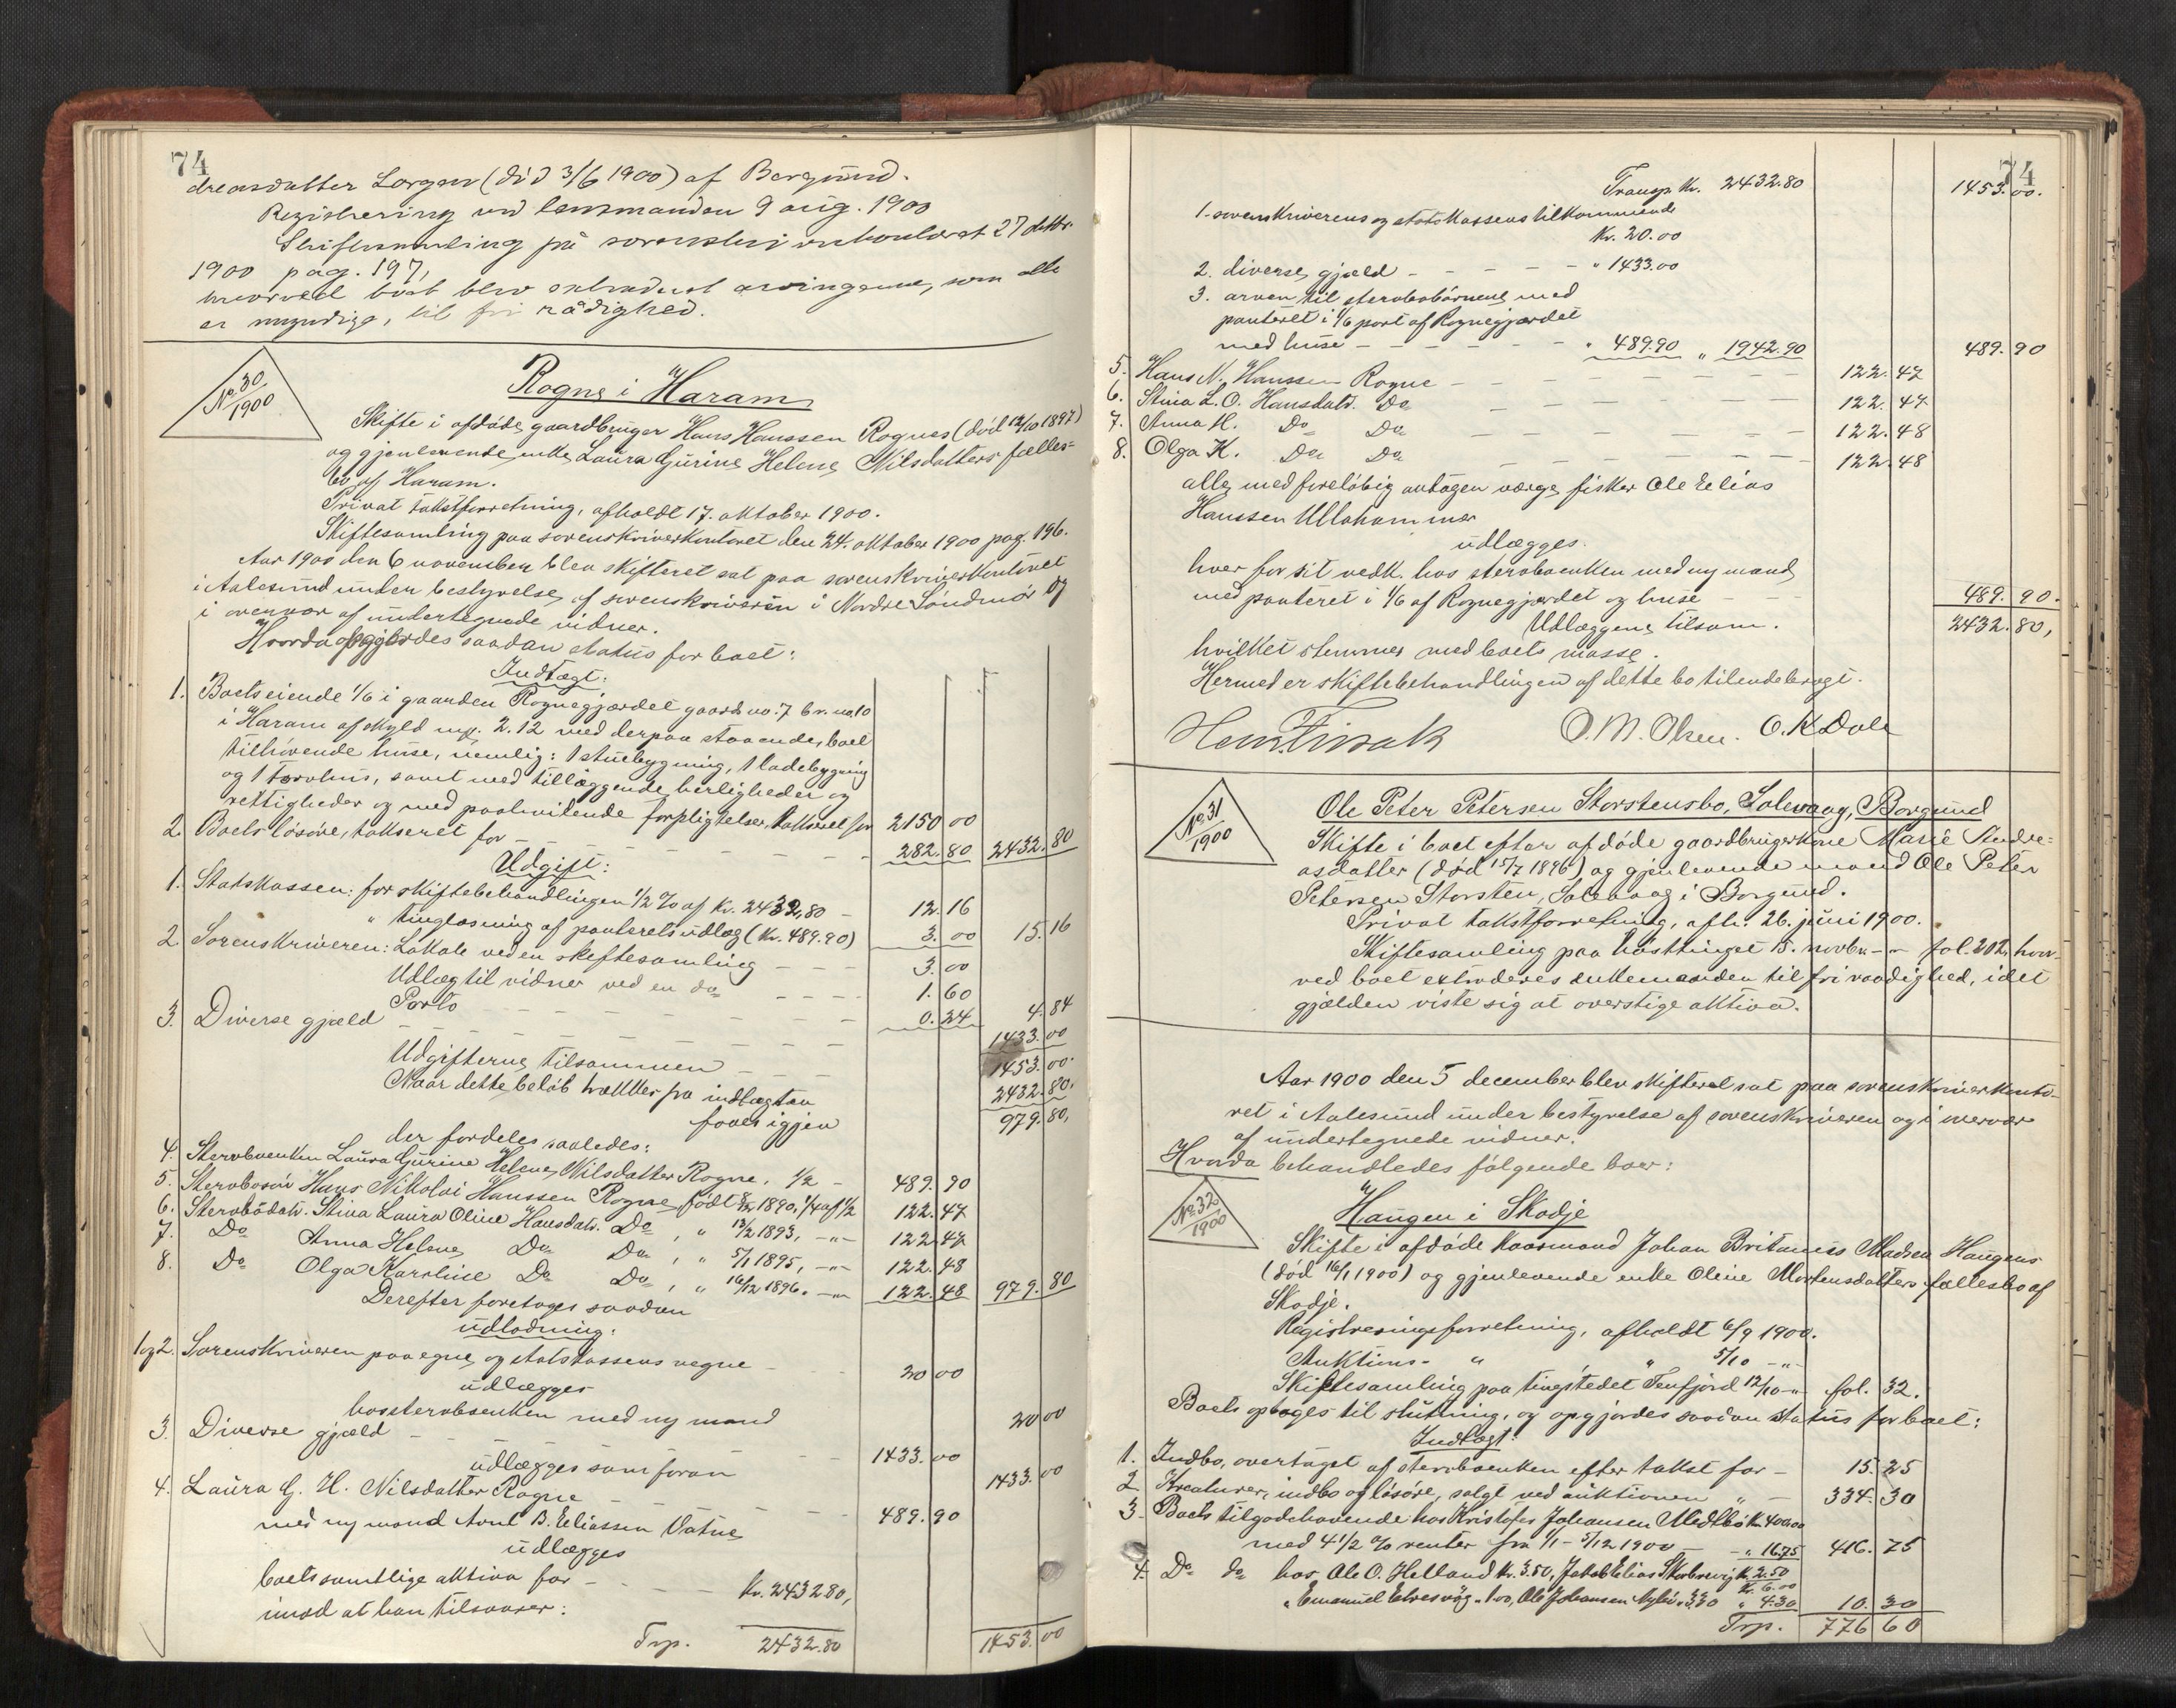 74
dreasdatter Sorgen (död 3/6 1900) af Borgund.
Registrering ved lensmanden 9 aug. 1900
Skiftesamling på sorenskriverkontoret 27 oktbr.
1900 pag. 197,
hvorved boet blev extraderet arvingerne, som alle
er myndige, til fri rådighed.
No 30/1900
Rogne i Haram
Skifte i afdöde gaardbruger Hans Hanssen Rognes (död 12/10 1897)
og gjenlevende enke Laura Gurine Helene Nilsdatters fælles-
bo af Haram.
Privat takstforretning, afholdt 17. oktober 1900.
Skiftesamling paa sorenskriverkontoret den 24. oktober 1900 pag. 196.
Aar 1900 den 6 november blev skifteret sat paa sorenskriverkontoret
i Aalesund under bestyrelse af sorenskriveren i Nordre Söndmör og
i overvær af undertegnede vidner.
Hvorda opgjordes saadan status for boet:
Indtægt:
1. Boets eiende 1/6 i gaarden Rognegjærdet gaards no. 7 br. no. 10
i Haram af skyld mk. 2.12 med derpaa staaende, boet
tilhörende huse, nemlig: 1 stuebygning, 1 ladebygning
og 1 torvhus, samt med tilliggende herligheder og
rettigheder og med paahvilende forpligtelser, takseret for 2150 00
2. Boets lösöre, takseret for - 282. 80 2432. 80
Udgift:
1. Statskassen: for skiftebehandlingen 1/2 % af Kr. 2432,80 - 12. 16
" tinglæsning af panteretsudlæg (Kr. 489.90) 3. 00 15. 16
2. Sorenskriveren: Lokale ved en skiftesamling - - - 3. 00
Udlæg til vidner ved en do - - - - 1. 60
Porto - - - - - 0. 24 4. 84
3. Diverse gjæld - - - - - - 1433. 00
Udgifterne tilsammen - - - 1453. 00.
Naar dette beløb trækkes fra indtægten 2432. 80.
faaes igjen 979. 80,
der fordeles saaledes:
4. Stervboenken Laura Gurine Helene Nilsdatter Rogne, 1/2 - 489. 90
5. Stervbosön Hans Nikolai Hanssen Rogne, födt 8/2 1890, 1/4 af 1/2 122. 47
6. Stervbodatr. Stina Laura Oline Hansdatr. Do , " 12/2 1893, -"- 122. 47
7. Do Anna Helene Do Do , " 5/1 1895, -"- 122. 48
8. Do Olga Karoline Do Do , " 16/12 1896. -"- 122. 48 979. 80
Derefter foretoges saadan
udlodning:
1 og 2. Sorenskriveren paa egne og statskassens vegne - 20 00
udlægges
hos stervboenken med ny mand 20 00
3. Diverse gjæld - - 1433. 00
udlægges som foran 1433. 00
4. Laura G. H. Nilsdatter Rogne - - - 489. 90
med ny mand Arnt B. Eliassen Vatne
udlægges
boets samtlige aktiva for - - - - Kr. 2432 80,
imod at han tilsvarer:
Trp. 2432.80 1453. 00
74
Transp. Kr. 2432.80 1453. 00.
1. sorenskriverens og statskassens tilkommende
Kr. 20.00
2. diverse gjæld - - - - - " 1433.00
3. arven til stervbobörnene med
panteret i 1/6 part af Rognegjærdet
med huse - - - - - - " 489.90 " 1942.90 489. 90
5. Hans N. Hanssen Rogne - - - - - - 122. 47
6. Stina L. O. Hansdatr. Do - - - - - 122. 47
7. Anna H. Do Do - - - - - 122. 48
8. Olga K. Do Do - - - - - 122. 48
alle med foreløbig antagen værge, fisker Ole Elias
Hanssen Ullahammer
udlægges.
hver for sit vedk. hos stervboenken med ny mand
med panteret i 1/6 af Rognegjærdet og huse - - - 489. 90.
Udlæggene tilsam. 2432. 80,
hvilket stemmer med boets masse.
Hermed er skiftebehandlingen af dette bo tilendebragt.
O. M. Olsen. O. K. Dale
No 31/1900
Ole Peter Petersen Storstensbo, Solevaag, Borgund
Skifte i boet efter afdöde gaardbrugerkone Marie Andre-
asdatter (död 15/7 1896) og gjenlevende mand Ole Peter
Petersen Storsten, Solevaag i Borgund.
Privat takstforretning, afh. 26. juni 1900.
Skiftesamling paa hösttinget 15. novbr. -"- fol. 202, hvor-
ved boet extraderes enkemanden til fri raadighed, idet
gjælden viste sig at overstige aktiva.
Aar 1900 den 5 december blev skifteret sat paa sorenskriverkonto-
ret i Aalesund under bestyrelse af sorenskriveren og i overvær
af undertegnede vidner.
Hvorda behandledes følgende boer:
No 32/1900
Haugen i Skodje
Skifte i afdöde kaarmand Johan Britanus Madsen Haugens
(död 16/1 1900) og gjenlevende enke Oline Mortensdatters fællesbo af
Skodje.
Registreringsforretning, afholdt 6/9 1900.
Auktions- " " 5/10 -"-
Skiftesamling paa tingstedet Tenfjord 12/10 -"- fol. 32.
Boets optoges til slutning, og opgjordes saadan status for boet:
Indtægt:
1. Indbo, overtaget af stervboenken efter takst for - 15. 25
2. Kreaturer, indbo og lösöre, solgt ved auktionen " - 334. 30
3. Boets tilgodehavende hos Kristofer Johansen Medtbö Kr. 400.00
med 4 1/2 % renter fra 1/1 - 5/12 1900 - - " 16.75 416. 75
4. Do do hos Ole O. Helland Kr. 3.50, Jakob Elias Skorbrevig K. 2.50
Kr. 6.00
" Emanuel Ekresvåg " 1.00, Ole Johansen Nylis " 3.30 " 4.30 10. 30
Trp. 776 60